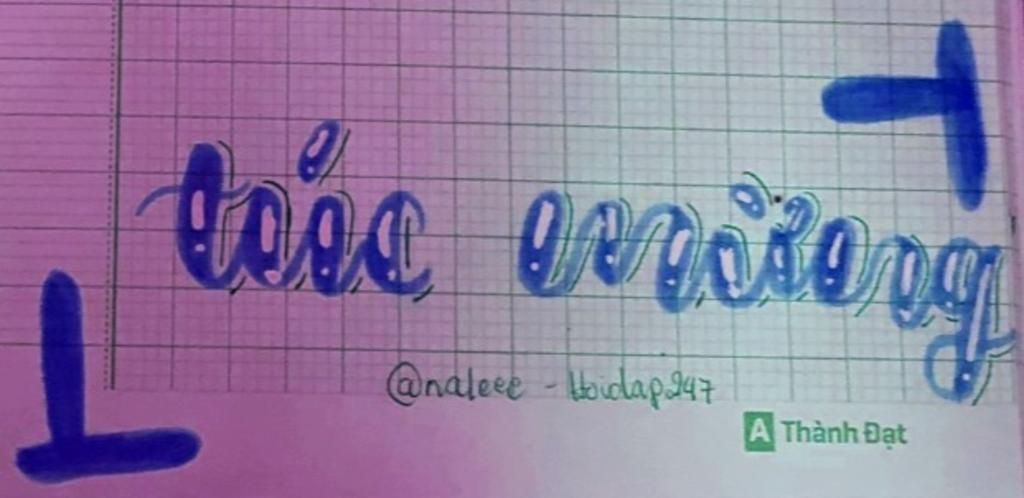 mừng
@naleee - Hoidap247
A Thành Đạt